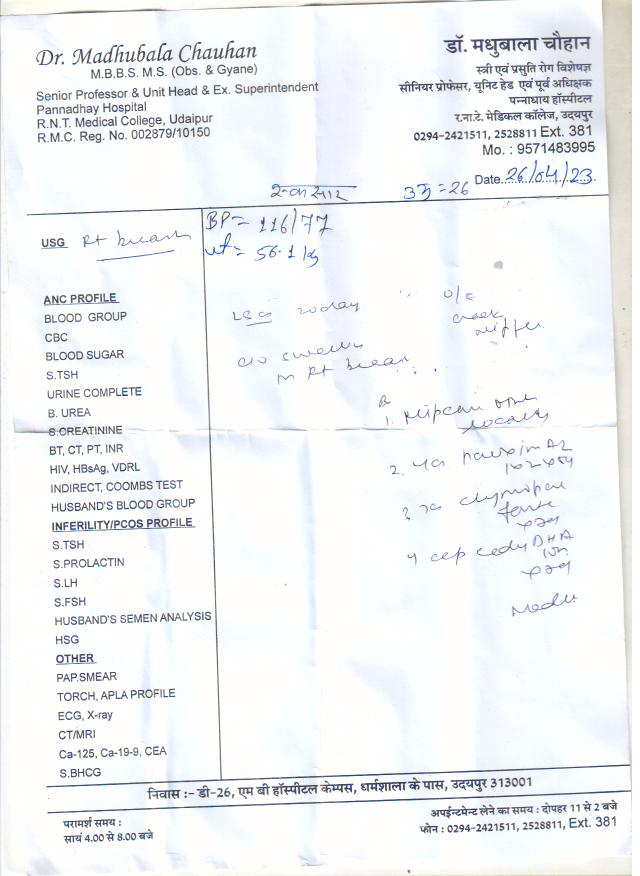 Dr. Madhubala Chauhan
M.B.B.S. M.S. (Obs. & Gyane)
Senior Professor & Unit Head & Ex. Superintendent
Pannadhay Hospital
R.N.T. Medical College, Udaipur
R.M.C. Reg. No. 002879/10150
डॉ. मधुबाला चौहान
स्त्री एवं प्रसुति रोग विशेषज्ञ
सीनियर प्रोफेसर, यूनिट हेड एवं पूर्व अधिक्षक
पन्नाधाय हॉस्पीटल
र.ना.टे. मेडिकल कॉलेज, उदयपुर
0294-2421511, 2528811 Ext. 381
Mo. : 9571483995
Date. 26/04/23
= 26
BP = 116/77
wt = 56.1 kg
USG Rt breast
ANC PROFILE
BLOOD GROUP
CBC
BLOOD SUGAR
S.TSH
URINE COMPLETE
B. UREA
S.CREATININE
BT, CT, PT, INR
HIV, HBsAg, VDRL
INDIRECT, COOMBS TEST
HUSBAND'S BLOOD GROUP
INFERILITY/PCOS PROFILE
S.TSH
S.PROLACTIN
S.LH
S.FSH
HUSBAND'S SEMEN ANALYSIS
HSG
OTHER
PAP.SMEAR
TORCH, APLA PROFILE
ECG, X-ray
CT/MRI
Ca-125, Ca-19-9, CEA
S.BHCG
LSCS 20 day
O/E
crack
nipple
c/o swelling
in Rt breast
1. oint
locally
2.
3
forte
4 cap DHA
निवास :- डी-26, एम बी हॉस्पीटल केम्पस, धर्मशाला के पास, उदयपुर 313001
परामर्श समय :
सायं 4.00 से 8.00 बजे
अपईन्टमेन्ट लेने का समय : दोपहर 11 से 2 बजे
फोन : 0294-2421511, 2528811, Ext. 381